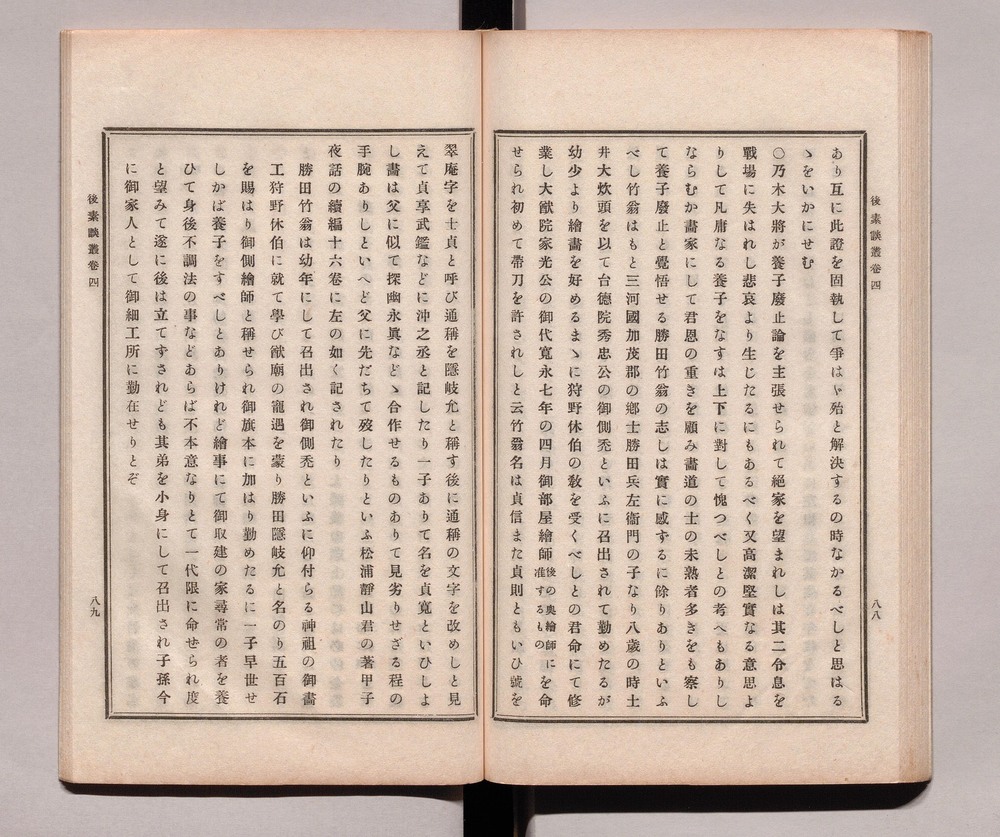 後素談叢卷四
八八
あり互に此證を固執して爭はゞ殆と解決するの時なかるべしと思はる
ゝをいかにせむ
○乃木大將が養子廢止論を主張せられて絕家を望まれしは其二令息を
戰場に失はれし悲哀より生じたるにもあるべく又高潔堅實なる意思よ
りして凡庸なる養子をなすは上下に對して愧つべしとの考へもありし
ならむか畫家にして君恩の重きを顧み畫道の士の未熟者多きをも察し
て養子廢止と覺悟せる勝田竹翁の志しは實に感ずるに餘りありといふ
べし竹翁はもと三河國加茂郡の鄕士勝田兵左衞門の子なり八歲の時土
井大炊頭を以て台德院秀忠公の御側禿といふに召出されて勤めたるが
幼少より繪畫を好めるまゝに狩野休伯の敎を受くべしとの君命にて修
業し大猷院家光公の御代寬永七年の四月御部屋繪師後の奧繪師に准するものを命
せられ初めて帶刀を許されしと云竹翁名は貞信また貞則ともいひ號を
翠庵字を士貞と呼び通稱を隱岐允と稱す後に通稱の文字を改めしと見
えて貞享武鑑などに沖之丞と記したり一子ありて名を貞寬といひしよ
し畫は父に似て探幽永眞などゝ合作せるものありて見劣りせざる程の
手腕ありしといへど父に先だちて歿したりといふ松浦靜山君の著甲子
夜話の續編十六卷に左の如く記されたり
勝田竹翁は幼年にして召出され御側禿といふに仰付らる神祖の御畵
工狩野休伯に就て學び猷廟の寵遇を蒙り勝田隱岐允と名のり五百石
を賜はり御側繪師と稱せられ御旗本に加はり勤めたるに一子早世せ
しかば養子をすべしとありけれど繪事にて御取建の家尋常の者を養
ひて身後不調法の事などあらば不本意なりとて一代限に命せられ度
と望みて遂に後は立てずされども其弟を小身にして召出され子孫今
に御家人として御細工所に勤在せりとぞ
後素談叢卷四
八九